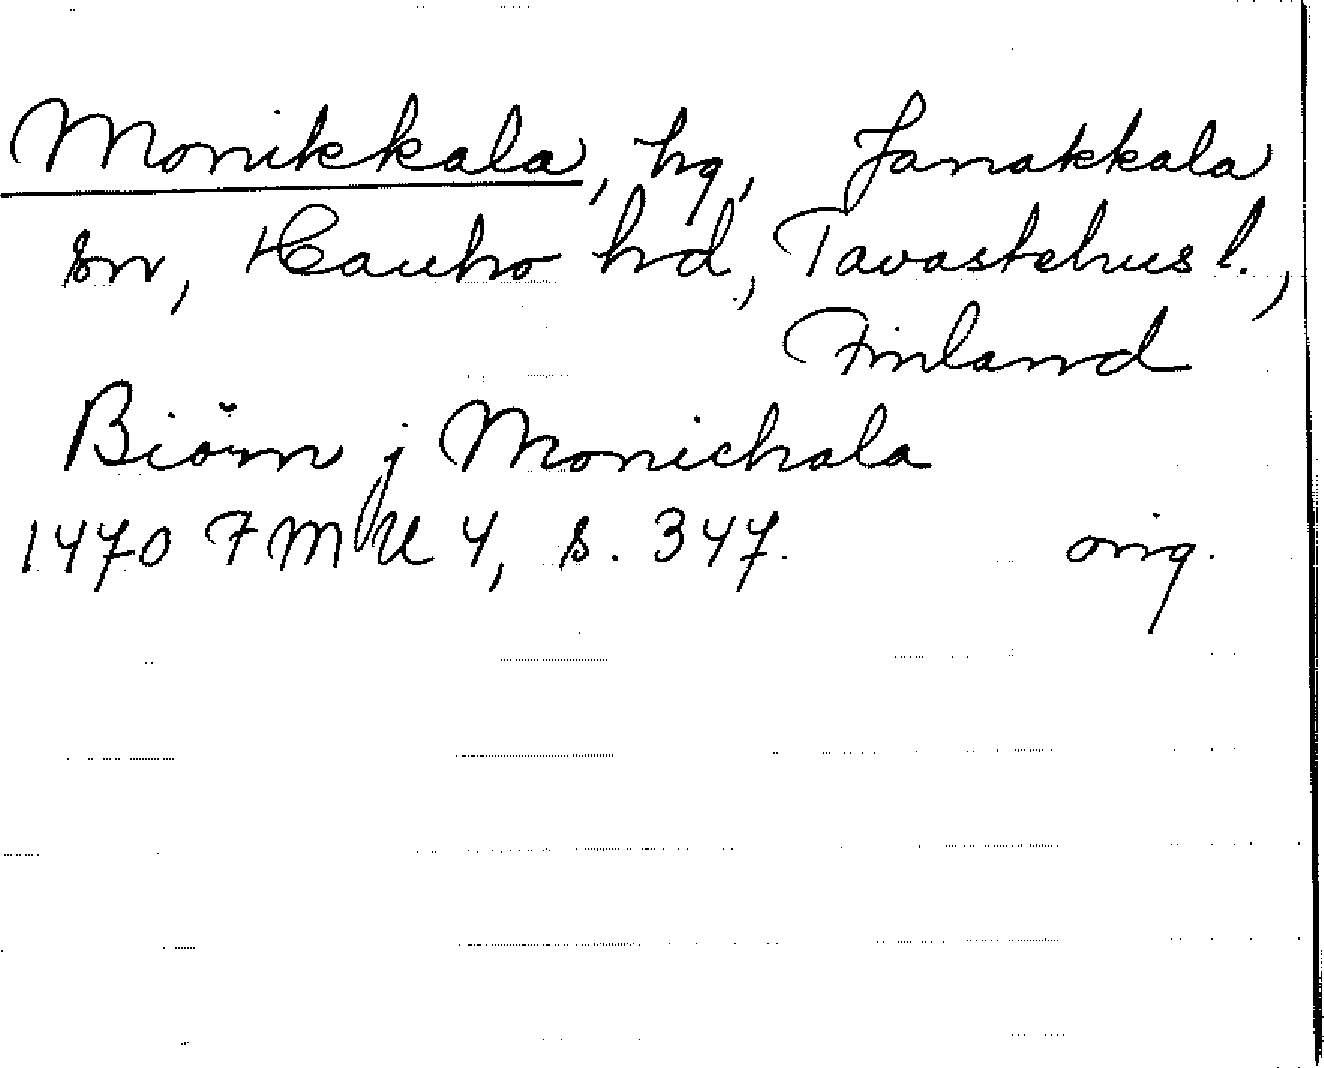 Monikkala, hg, Janakkala
sn, Hauho hd, Tavastehus l.,
Finland
Biörn j Monichala
1470 FMU 4, s. 347. orig.